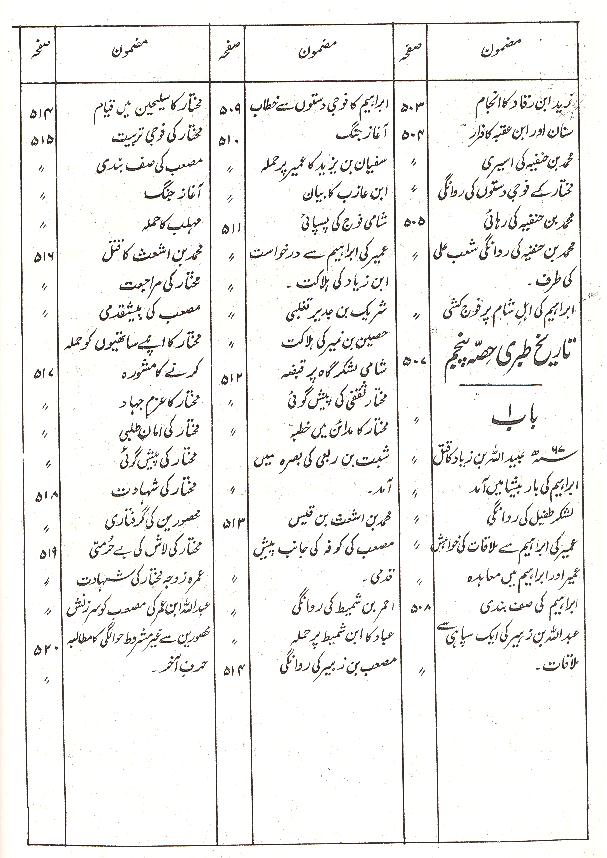 مضمون صفحہ
زید ابن رقاد کا انجام ۵۰۳
سنان اور ابن عقبہ کا فرار ۵۰۴
محمد بن حنفیہ کی اسیری 〃
مختار کے فوجی دستوں کی روانگی 〃
محمد بن حنفیہ کی رہائی ۵۰۵
محمد بن حنفیہ کی روانگی شعب علی
کی طرف۔ 〃
ابراہیم کی اہل شام پر فوج کشی 〃
تاریخ طبری حصہ پنجم ۵۰۷
باب ۱ 〃
۶۷ھ عبید اللہ بن زیاد کا قتل 〃
ابراہیم کی بار بیثا میں آمد 〃
لشکر طفیل کی روانگی 〃
عمیر کی ابراہیم سے ملاقات کی خواہش 〃
عمیر اور ابراہیم میں معاہدہ 〃
ابراہیم کی صف بندی ۵۰۸
عبد اللہ بن زہیر کی ایک سپاہی سے
ملاقات۔ 〃
مضمون صفحہ
ابراہیم کا فوجی دستوں سے خطاب ۵۰۹
آغاز جنگ ۵۱۰
سفیان بن یزید کا عمیر پر حملہ 〃
ابن عازب کا بیان 〃
شامی فوج کی پسپائی ۵۱۱
عمیر کی ابراہیم سے درخواست 〃
ابن زیاد کی ہلاکت۔ 〃
شریک بن جدیر تغلبی 〃
حصین بن نمیر کی ہلاکت 〃
شامی لشکر گاہ پر قبضہ ۵۱۲
مختار ثقفی کی پیش گوئی 〃
مختار کا مدائن میں خطبہ 〃
شبث بن ربعی کی بصرہ میں
آمد۔ 〃
محمد بن اشعث بن قیس ۵۱۳
مصعب کی کوفہ کی جانب پیش
قدمی۔ 〃
احمر بن شمیط کی روانگی 〃
عباد کا ابن شمیط پر حملہ 〃
مصعب بن زبیر کی روانگی ۵۱۴
مضمون صفحہ
مختار کا سیلحین میں قیام ۵۱۴
مختار کی فوجی ترتیب ۵۱۵
مصعب کی صف بندی 〃
آغاز جنگ 〃
مہلب کا حملہ 〃
محمد بن اشعث کا قتل ۵۱۶
مختار کی مراجعت 〃
مصعب کی پیشقدمی 〃
مختار کا اپنے ساتھیوں کو حملہ
کرنے کا مشورہ ۵۱۷
مختار کا عزم جہاد 〃
مختار کی امان طلبی 〃
مختار کی پیش گوئی 〃
مختار کی شہادت ۵۱۸
محصورین کی گرفتاری 〃
مختار کی لاش کی بے حرمتی ۵۱۹
عمرہ زوجہ مختار کی شہادت 〃
عبد اللہ ابن عمر کی مصعب کو سرزنش 〃
محصورین سے غیر مشروط حوالگی کا مطالبہ ۵۲۰
حرف آخر۔ 〃